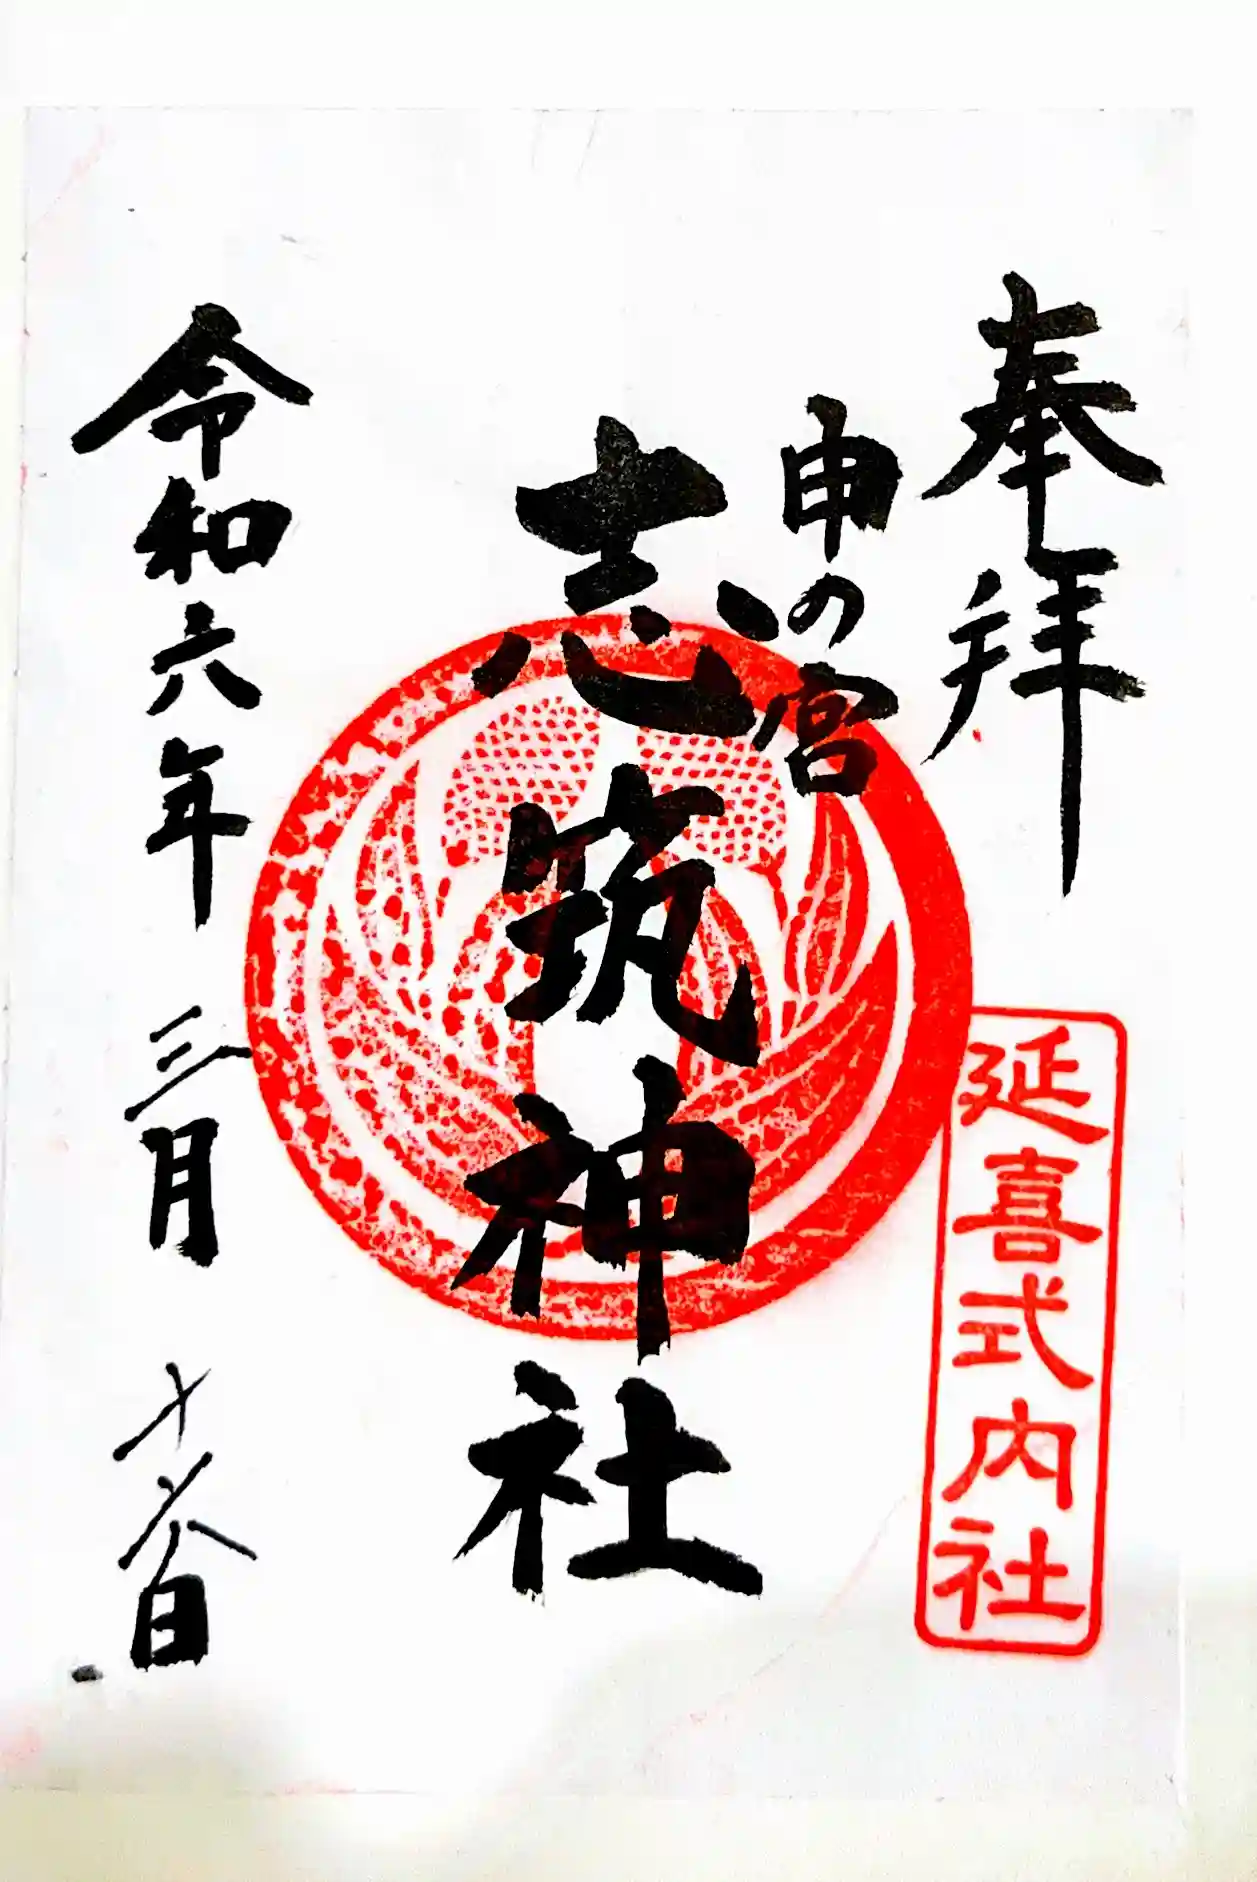 奉拝
申の宮
志筑神社
延喜式内社
令和六年 三月 十六日